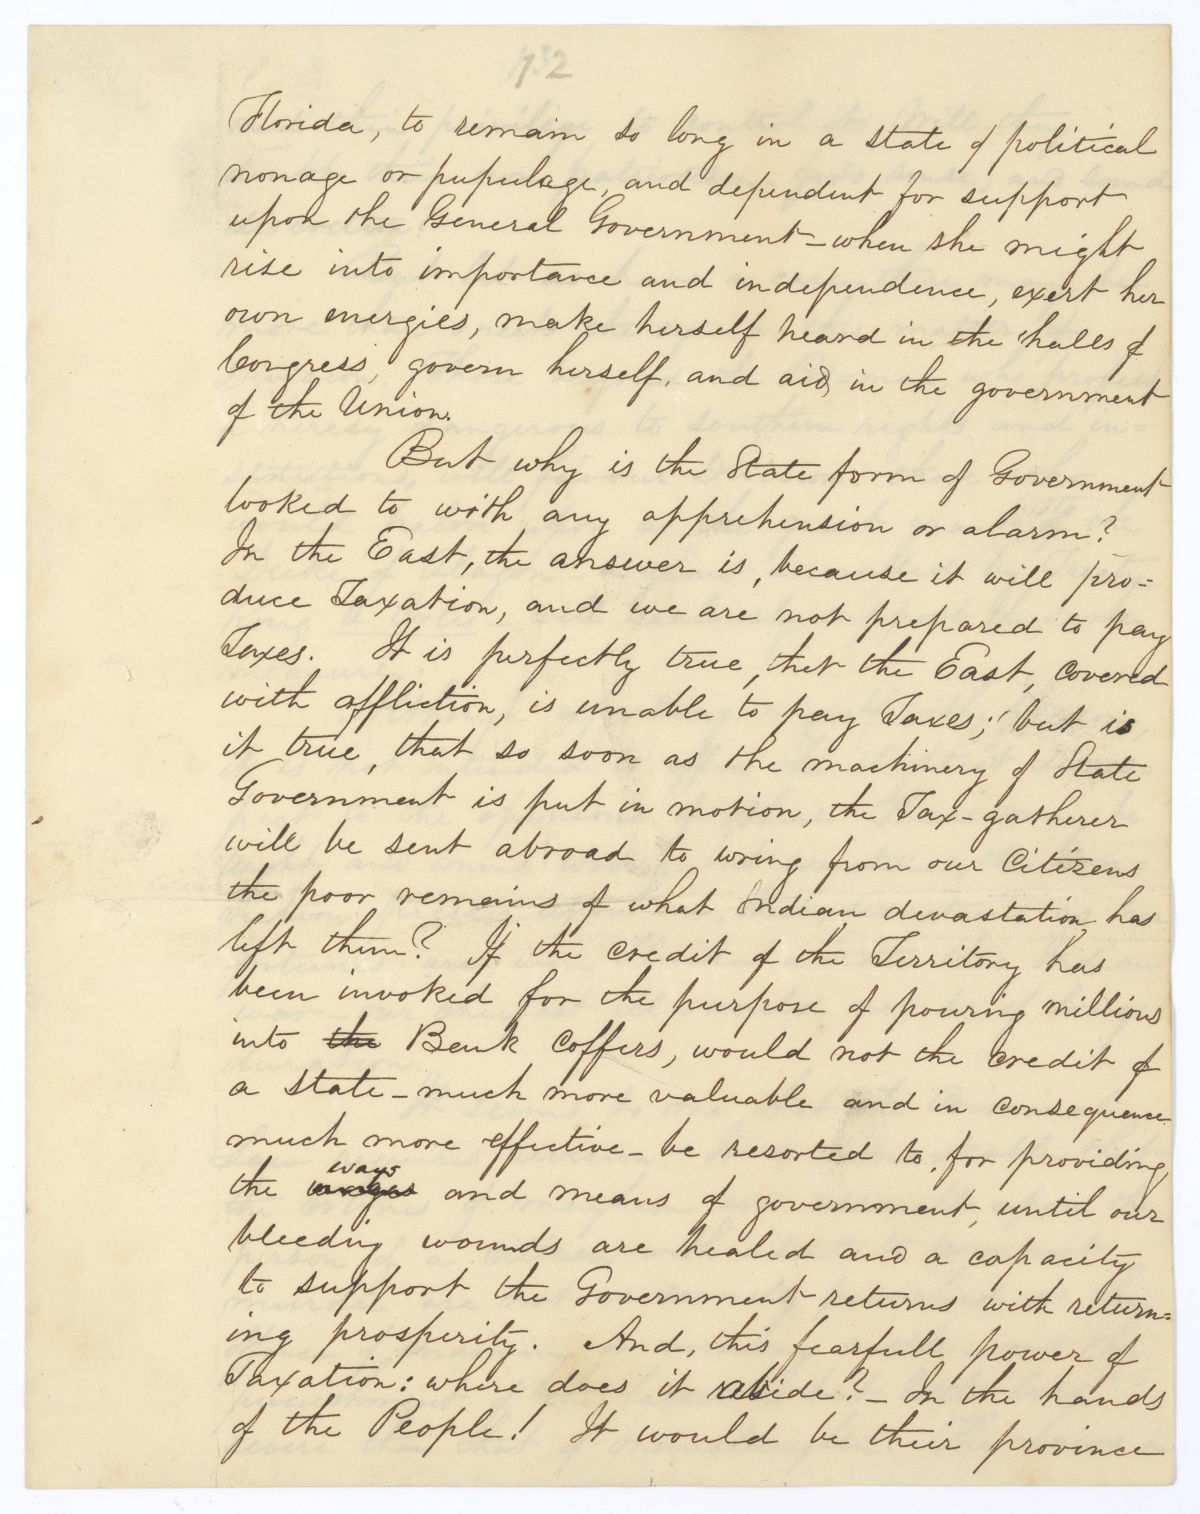 12
Florida, to remain so long in a state of political
nonage or pupulage, and dependent for support
upon the General Government - when she might
rise into importance and independence, exert her
own energies, make herself heard in the halls of
Congress, govern herself, and aid, in the government
of the Union.
But why is the State form of Government
looked to with any apprehension or alarm?
In the East, the answer is, because it will pro-
duce Taxation, and we are not prepared to pay
Taxes. It is perfectly true, that the East, covered
with affliction, is unable to pay Taxes; but is
it true, that so soon as the machinery of State
Government is put in motion, the Tax-gatherer
will be sent abroad to wring from our Citizens
the poor remains of what Indian devastation has
left them? If the credit of the Territory has
been invoked for the purpose of pouring millions
into the Bank coffers, would not the credit of
a state - much more valuable and in consequence
much more effective - be resorted to, for providing
ways
the wages and means of government, until our
bleeding wounds are healed and a capacity
to support the Government returns with return-
ing prosperity. And, this fearfull power of
Taxation: where does it abide? - In the hands
of the People! It would be their province